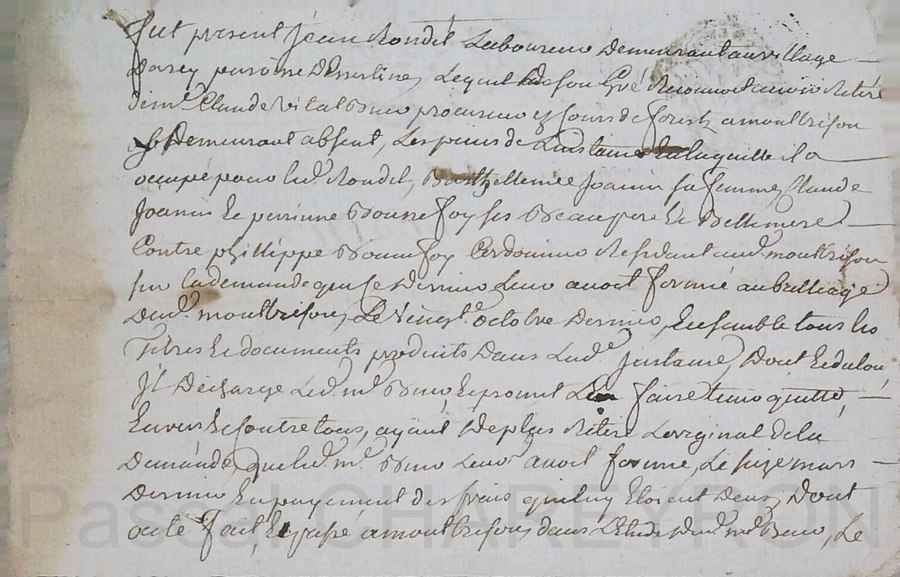 fut present Jean Rondel Laboureur demeurant au village
Darcy paroisse Desertines, Lequel de son Gré Reconnoit avoir Retiré
de me Claude Vital Bruo procureur ez cours de forest a montbrison
y Demeurant absent, Les pieces de Linstance en laquelle il a
occupé pour led. Rondel, Barthellemie Joanin sa femme, Claude
Joanin et perinne Bonnefoy ses Beaupere et Bellemere
Contre phillippe Bonnefoy Cordonnier Residant aud. montbrison
sur la demande que ce Dernier Leur avoit formé au bailliage
Dud. montbrison, Le vingt octobre Dernier, Ensemble tous les
Titres et documents produits Dans Lad. instance, Dont et du tout
Il Décharge Led. me Bruo et promet Len faire tenir quitte,
Envers et Contre tous, ayant De plus Retiré Loriginal de la
Demande que led. me Bruo Leur avoit formé, Le seize mars
Dernier En payement des frais qui luy Etoient Deus, Dont
acte fait, et passé a montbrison, dans L'Etude Dud. me Bruo, Le
Pascal CHAREYRON